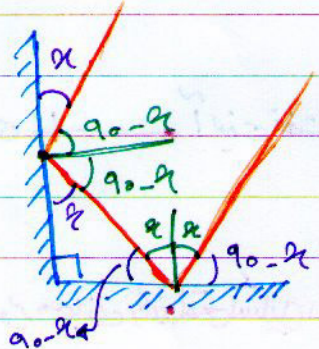 x
90-x
90-x
x
x
x
90-x
90-x